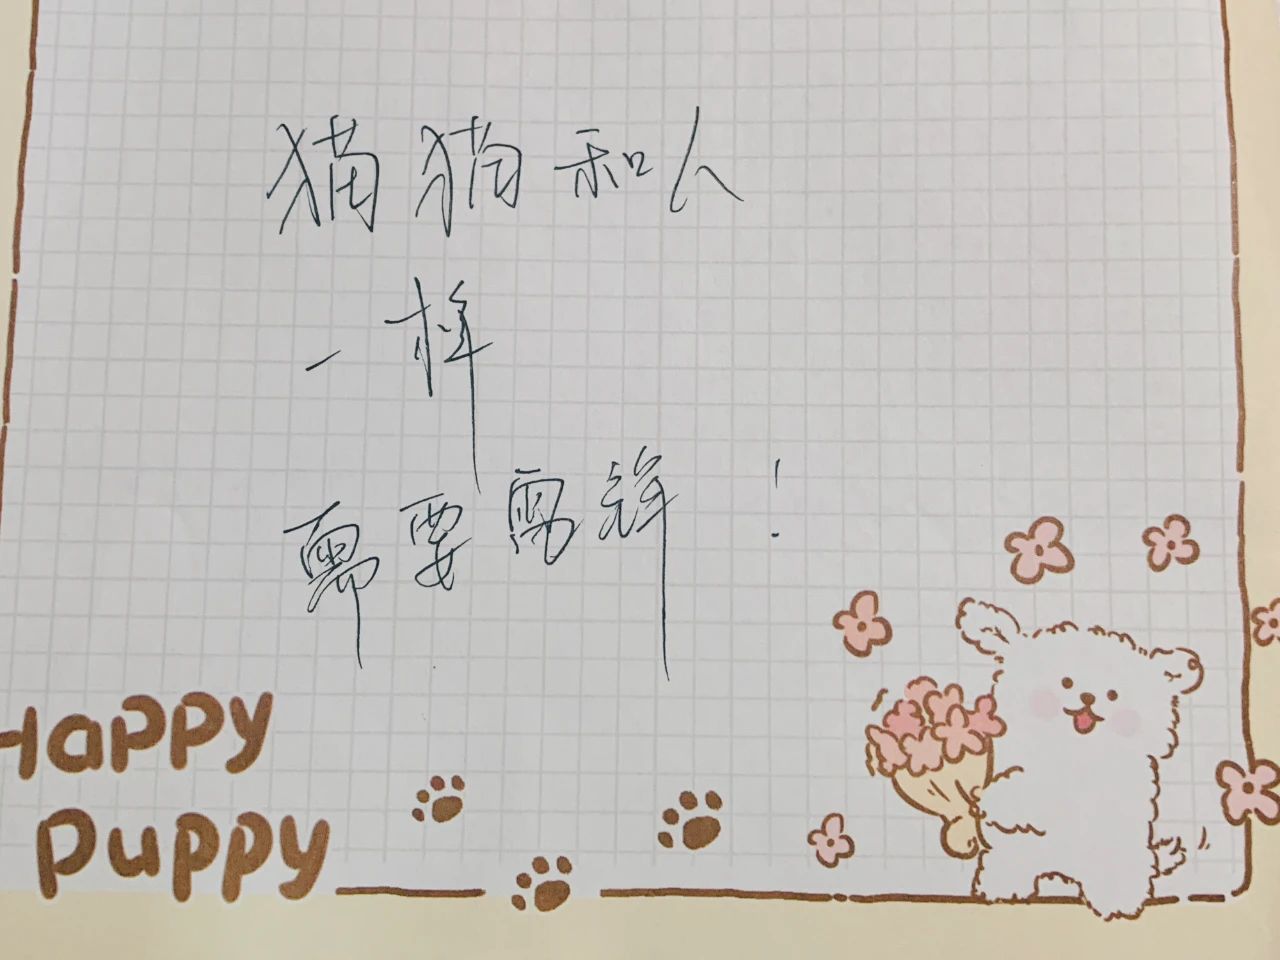 猫猫和人
一样
需要
！
Happy
Puppy